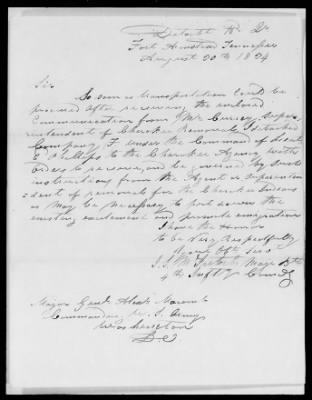 Fort Armstead Tennessee
August 20th 1834
Sir
So soon as transportation could be
procured after receiving the enclosed
communication from Mr Currey, Super
intendent of Cherokee Removals I detached
Company F under the Command of
to the Cherokee Agency with
orders to and be by such
instructions from the Agent or Superinten
dent of removals for the Cherokee Indians
as May be Necessary to put down the
existing excitement and promote emigration
I have the Honor
to be Very Respectfully
Your Obt Servt
J. S. Mc Maj &
4th Infty Comdg
Major Genl Alexr Macomb
Commanding U. S. Army
Washington
D.C